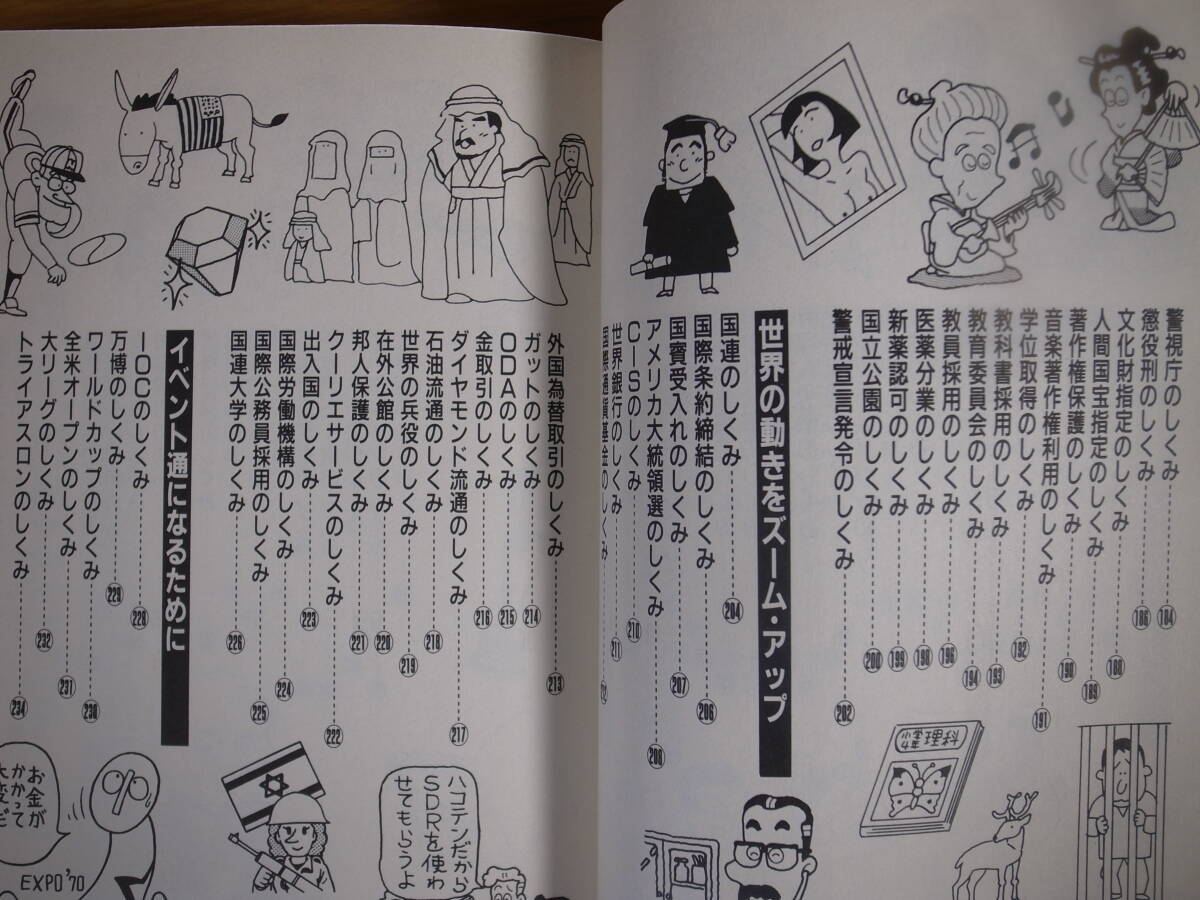 警視庁のしくみ 184
懲役刑のしくみ 186
文化財指定のしくみ 188
人間国宝指定のしくみ 189
著作権保護のしくみ 190
音楽著作権利用のしくみ 191
学位取得のしくみ 192
教科書採用のしくみ 193
教育委員会のしくみ 194
教員採用のしくみ 196
医薬分業のしくみ 198
新薬認可のしくみ 199
国立公園のしくみ 200
警戒宣言発令のしくみ 202
世界の動きをズーム・アップ
国連のしくみ 204
国際条約締結のしくみ 206
国賓受入れのしくみ 207
アメリカ大統領選のしくみ 208
CISのしくみ 210
世界銀行のしくみ 211
国際通貨基金のしくみ 212
小学4年 理科
外国為替取引のしくみ 213
ガットのしくみ 214
ODAのしくみ 215
金取引のしくみ 216
ダイヤモンド流通のしくみ 217
石油流通のしくみ 218
世界の兵役のしくみ 219
在外公館のしくみ 220
邦人保護のしくみ 221
クーリエサービスのしくみ 222
出入国のしくみ 223
国際労働機構のしくみ 224
国際公務員採用のしくみ 225
国連大学のしくみ 226
イベント通になるために
IOCのしくみ 228
万博のしくみ 229
ワールドカップのしくみ 230
全米オープンのしくみ 231
大リーグのしくみ 232
トライアスロンのしくみ 234
ハコテンだから
SDRを使わ
せてもらうよ
お金が
かかって
大変だ
EXPO'70